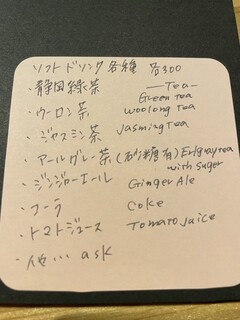 ソフトドリンク各種 各300
―Tea―
・静岡緑茶 Green tea
・ウーロン茶 woolong tea
・ジャスミン茶 Jasming tea
・アールグレー茶(お砂糖有) Erlgray tea
with suger
・ジンジャーエール Ginger Ale
・コーラ Coke
・トマトジュース Tomato juice
・他… ask